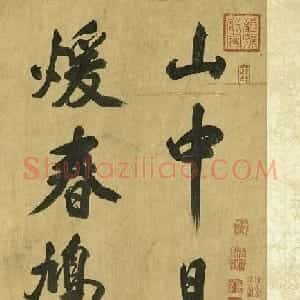 山中日
煖春鳩
Shufaziliao.com